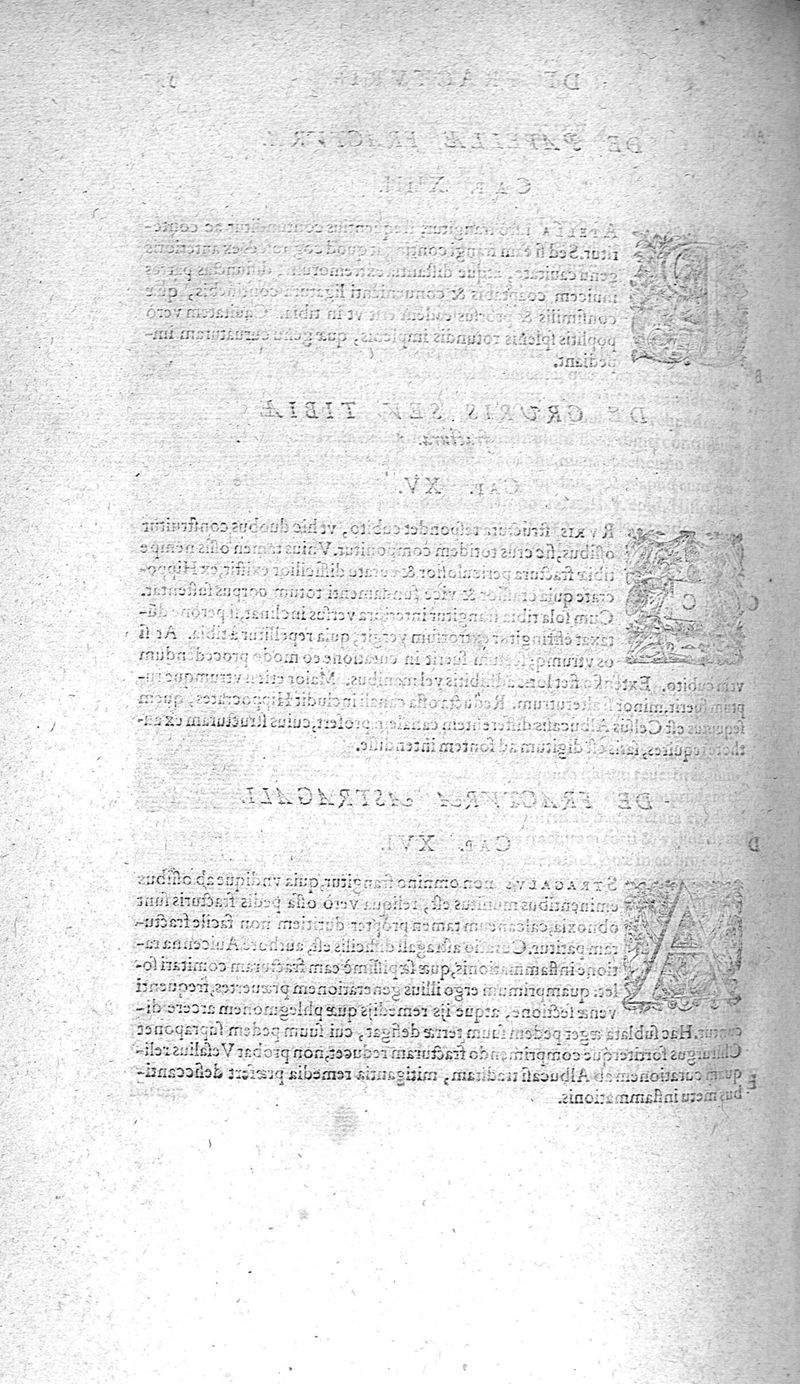 DE FRACTVRIS
DE PATELLÆ FRACTVRA.
CAP. XIIII.
PATELLA frangitur, frequentius contunditur ac conte-
ritur. Sed si eam frangi contingat quod cognosces ex anterioris
genu cauitate, atque distantia extremorum, diductas partes
inuicem coaptabis & conuenienti ligatura continebis, quæ
consimilis & prorsus eadem est vt in tibia. Cauitatem verò
poplitis splenis rotundis implebis, quæ genu curuaturam im-
pediant.
DE CRVRIS SEV TIBIÆ
fractura.
CAP. XV.
CRVRIS structura respondet cubito, vt hic duobus construitur
ossibus, sic crus totidem componitur. Vnius tamen ossis nempe
tibiæ fractura periculosior & curatu difficilior existit, ex Hippo-
crate quia crassior & vice fundamenti totum corpus sustentat.
Cum sola tibia frangitur interiora versus inclinat, si peronę dū-
taxat effringitur extrorsum vergit, quia repellitur à tibia. At si
os vtrumq; lęsum fuerit in curatione eo modo procedendum
vt in cubito. Extensio fiet loris adhibitis vel manibus. Maior etiā si vtrumque ru-
ptum fuerit, minor si alterutrum. Reducta ossa canali includit Hippocrates, quem
sequutus est Celsus Albucasis differentem canalem profert, cuius structuram ex au-
thore requires, satis est digitum ad fontem intendisse.
DE FRACTVRA ASTRAGALI.
CAP. XVI.
ASTRAGALVS non omnino frangitur, quia vndique ab ossibus
eminentibus munitus est, reliqua verò ossa pedis fracturis sunt
obnoxia, calcaneum tamen propter duritiem non facile fractu-
ram patitur. Curatio astragali difficilis est, authore Auicenna ra-
tione inflammationis, quæ sæpissimè eam fracturam comitari so-
let. quamprimum ergo illius generationem præuertes, frequenti
venæ sectione, atque ijs remedijs quæ phlegmonem arcere di-
cuntur. Hac sublata æger pedem suum terræ defigat, cui suum pedem supraponet
Chirurgus fortiterque comprimendo fracturam reducet, non probat Vesalius reli-
quam curationem ab Albucasi traditam, mitigantia remedia præfert desiccanti-
bus metu inflammationis.
B
C
D
E